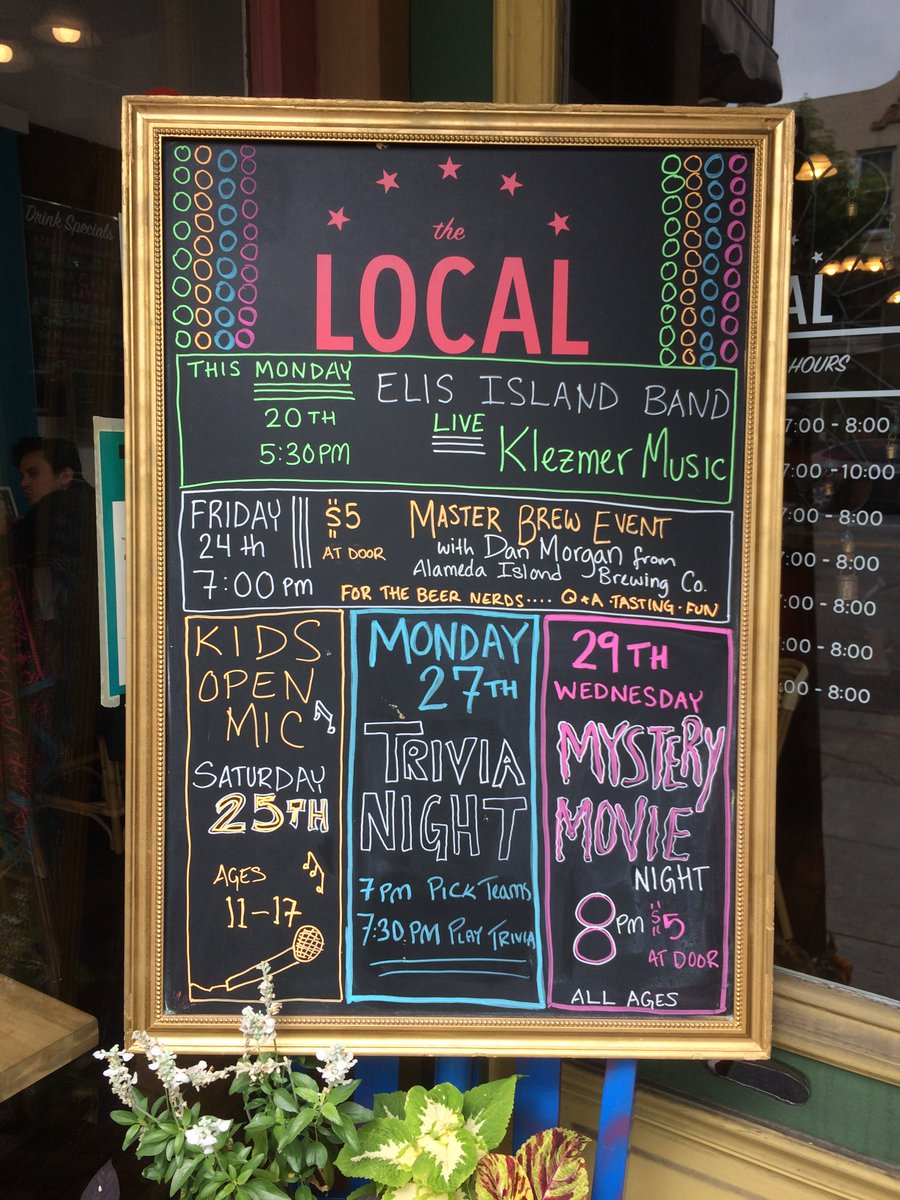 the
LOCAL
THIS MONDAY
20TH
5:30PM
ELIS ISLAND BAND
LIVE
Klezmer Music
FRIDAY
24th
7:00 pm
$5
AT DOOR
MASTER BREW EVENT
with Dan Morgan from
Alameda Island Brewing Co.
FOR THE BEER NERDS.... Q & A · TASTING · FUN
KIDS
OPEN
MIC
SATURDAY
25TH
AGES
11-17
MONDAY
27TH
TRIVIA
NIGHT
7PM PICK TEAMS
7:30PM PLAY TRIVIA
29TH
WEDNESDAY
MYSTERY
MOVIE
NIGHT
8PM $5
AT DOOR
ALL AGES
Drink Specials
AL
HOURS
7:00 - 8:00
7:00 - 10:00
7:00 - 8:00
7:00 - 8:00
7:00 - 8:00
:00 - 8:00
:00 - 8:00